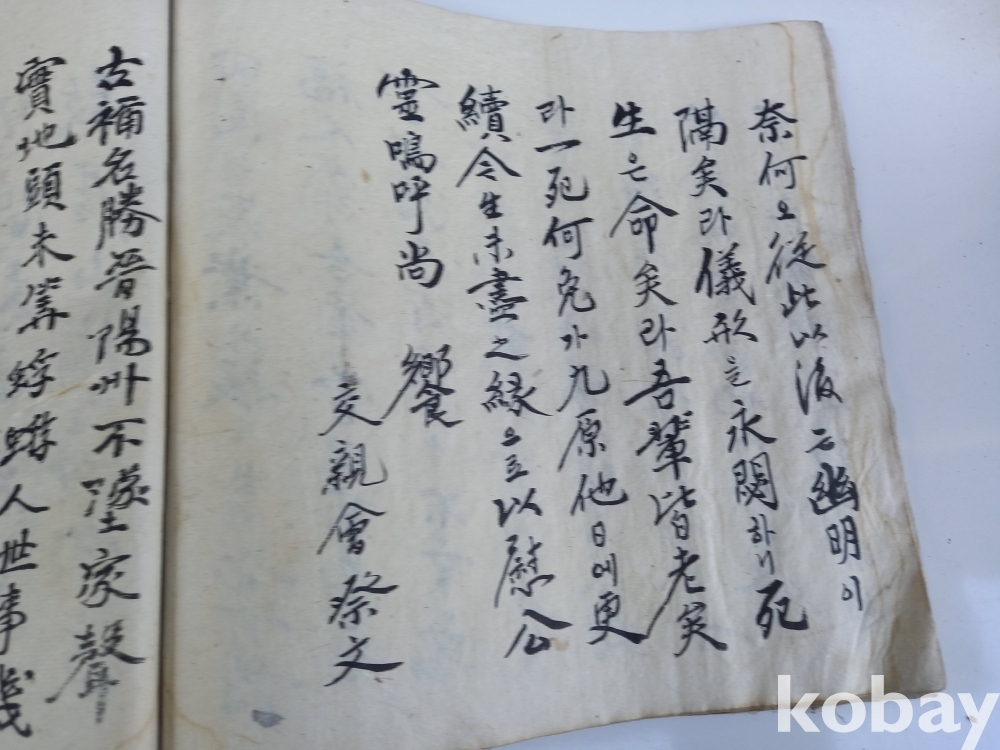 奈何오從此以後는幽明이
隔矣라儀形은永閟하니死
生은命矣라吾輩皆老矣
라一死何免가九原他日에更
續今生未盡之緣으로以慰公
靈嗚呼尚 饗
交親會祭文
古稱名勝晋陽州不墜家聲
實地頭未算蜉蝣人世事
kobay